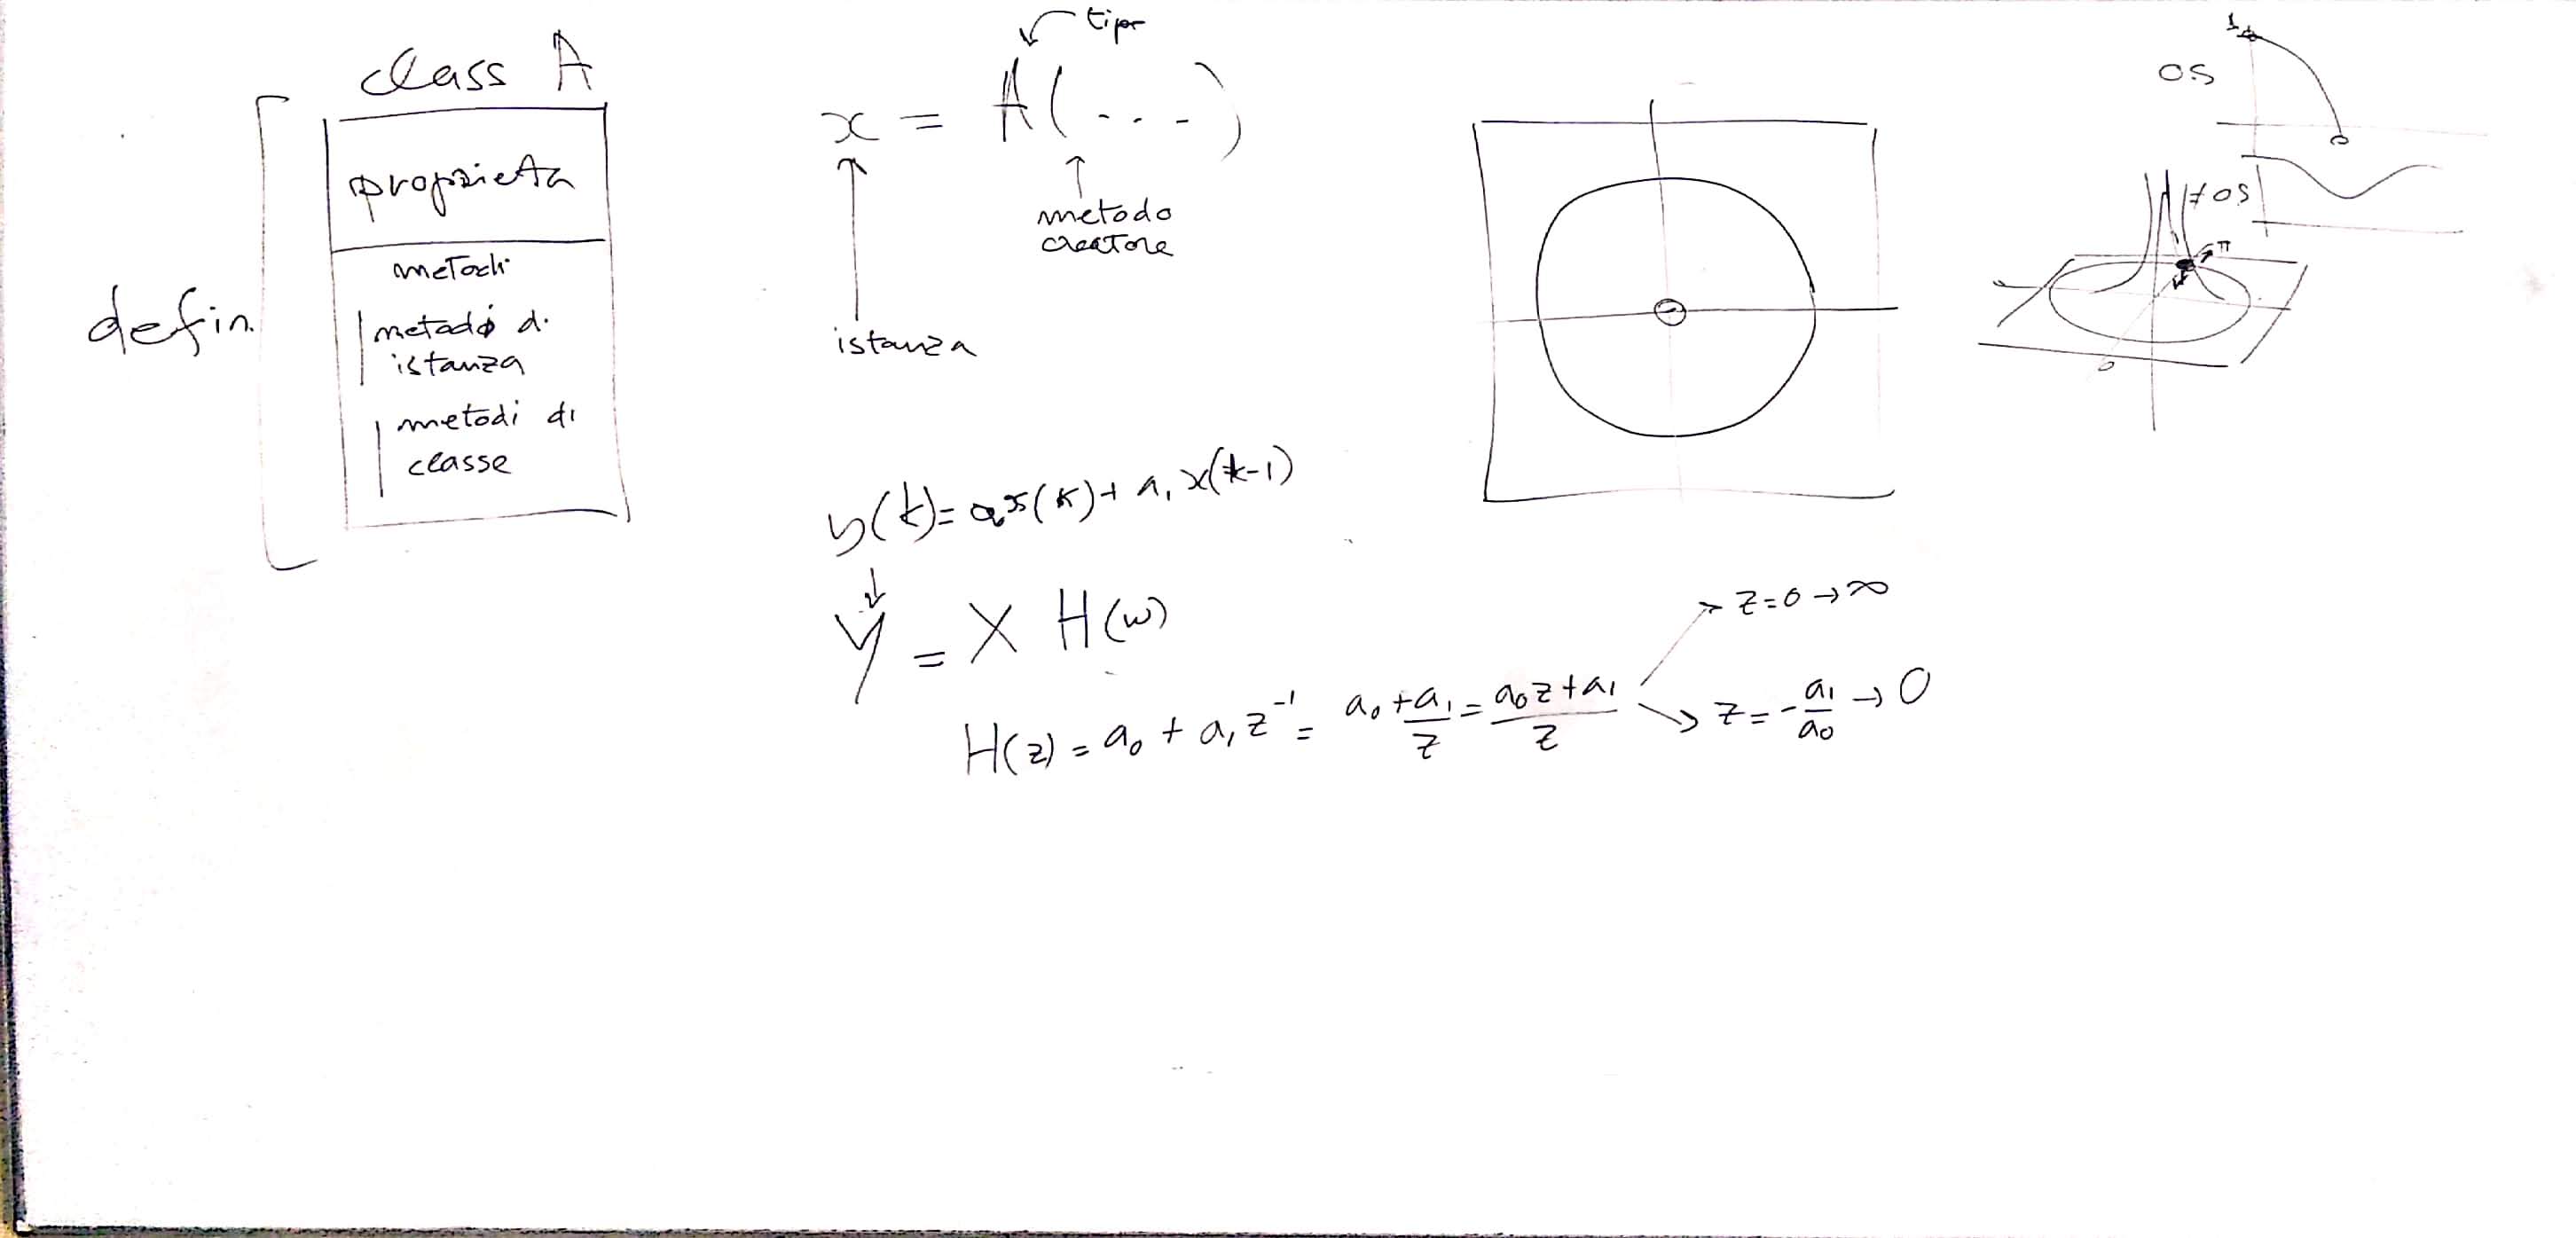 class A
proprietà
metodi
metodi di
istanza
metodi di
classe
defin.
tipo
x = A(...)
istanza
metodo
creatore
y(k) = a₀x(k) + a₁ x(k-1)
Y = X H(w)
H(z) = a₀ + a₁ z⁻¹ = a₀ + a₁/z = (a₀z + a₁)/z
z=0 → ∞
z = -a₁/a₀ → 0
1
OS
≠ OS
π
0